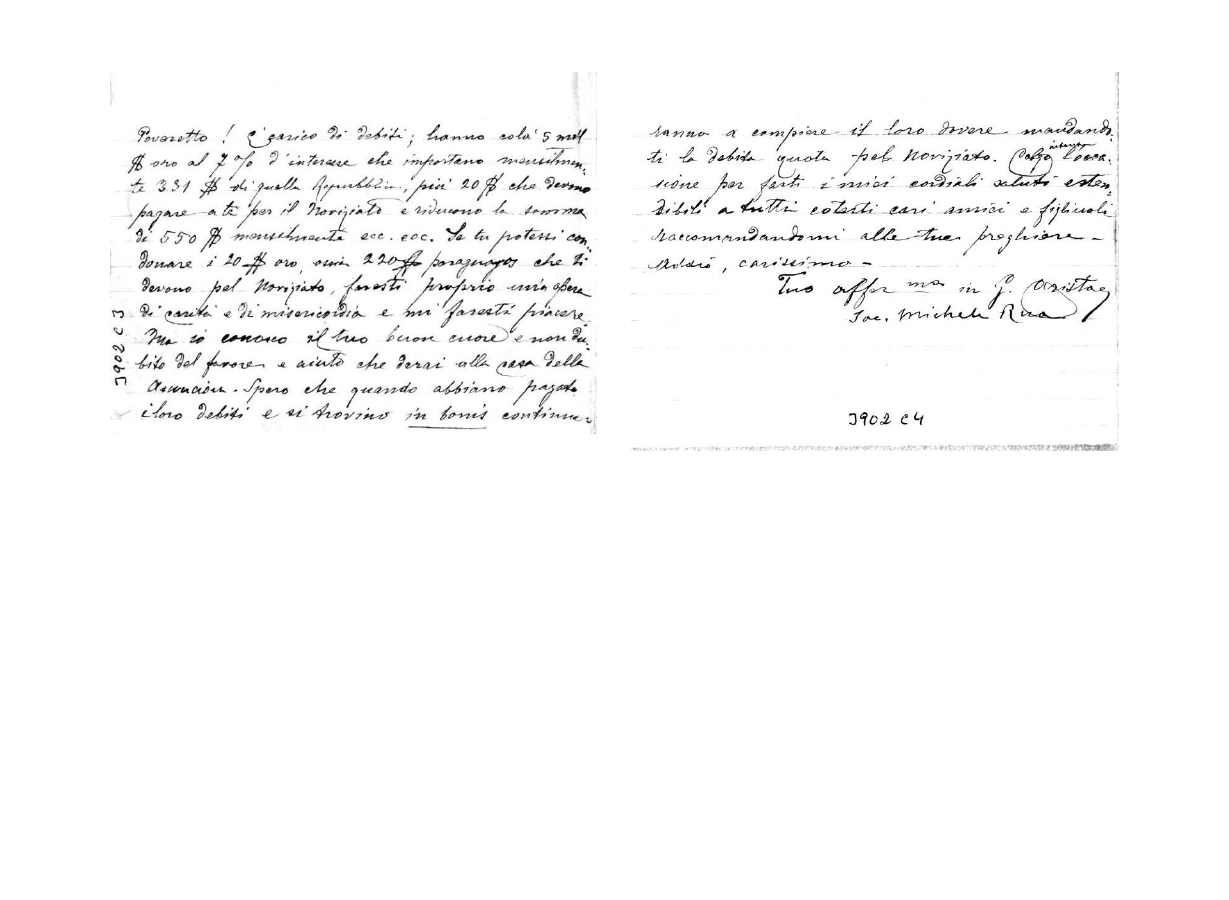 Poveretto! È carico di debiti; hanno colà 5 mill
$ oro al 7 % d'interesse che importano mensilmen-
te 331 $ di quella Repubblica, più 20 $ che devono
pagare a te per il Noviziato e riducono la somma
di 550 $ mensilmente ecc. ecc. Se tu potessi con-
donare i 20 $ oro, ossia 220 $ paraguayos che ti
devono pel Noviziato, faresti proprio un'opera
di carità e di misericordia e mi faresti piacere
Ma io conosco il tuo buon cuore e non du-
bito del favore e aiuto che darai alla casa della
Asuncion. Spero che quando abbiano pagato
i loro debiti e si trovino in bonis continue-
3902 C3
ranno a compiere il loro dovere mandando-
ti la debita quota pel Noviziato. Colgo intanto l'occa-
sione per farti i miei cordiali saluti esten-
dibili a tutti cotesti cari amici e figliuoli
raccomandandomi alle tue preghiere -
Addio, carissimo -
Tuo affez mo in G. Cristo
Sac. Michele Rua
3902 C4